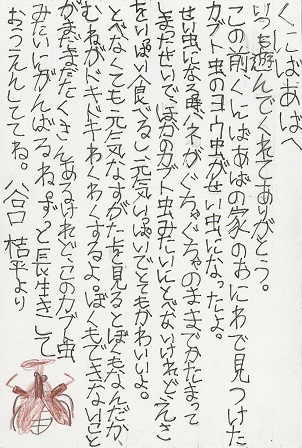 くにばあばへ
いつも遊んでくれてありがとう。
この前、くにばあばの家のおにわで見つけた
カブト虫のヨウ虫がせい虫になったよ。
せい虫になる時、ハネがぐちゃぐちゃのままでかたまって
しまったせいでほかのカブト虫みたいにとべないけれど、えさ
をいっぱい食べるし、元気いっぱいでとてもかわいいよ。
とべなくても元気なすがたを見るとぼくもなんだか
むねがドキドキわくわくするよ。ぼくもできないこと
がまだまだたくさんあるけれど、このカブト虫
みたいにがんばるね。ずっと長生きして
おうえんしててね。 谷口 桔平より